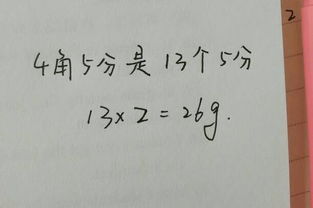 2
4角5分是13个5分
13×2=26g.